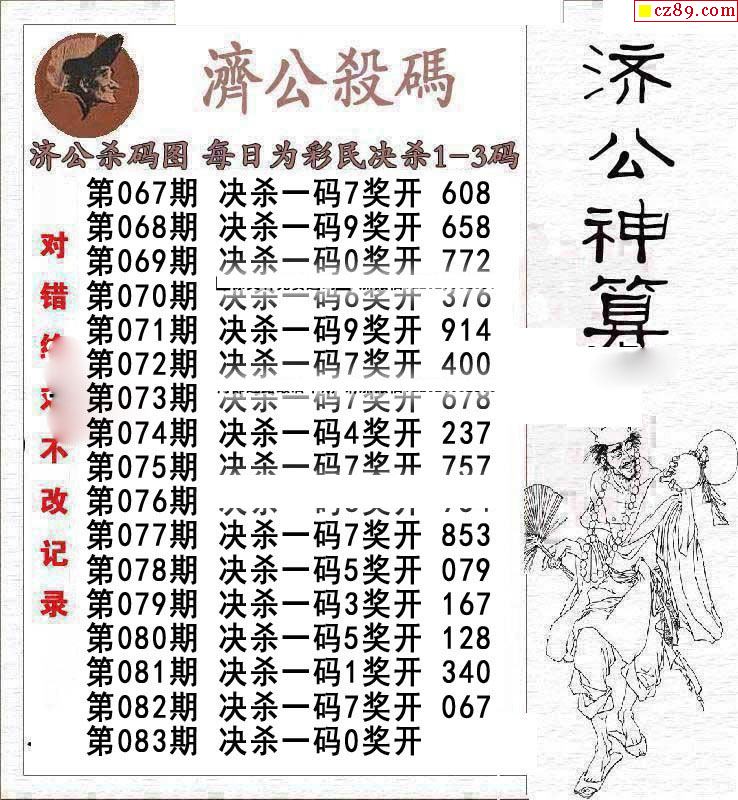 cz89.com
濟公殺碼
济公杀码图 每日为彩民决杀1-3码
第067期 决杀一码7奖开 608
第068期 决杀一码9奖开 658
第069期 决杀一码0奖开 772
第070期 决杀一码6奖开 376
第071期 决杀一码9奖开 914
第072期 决杀一码7奖开 400
第073期 决杀一码7奖开 678
第074期 决杀一码4奖开 237
第075期 决杀一码7奖开 757
第076期
第077期 决杀一码7奖开 853
第078期 决杀一码5奖开 079
第079期 决杀一码3奖开 167
第080期 决杀一码5奖开 128
第081期 决杀一码1奖开 340
第082期 决杀一码7奖开 067
第083期 决杀一码0奖开
对错
不改记录
济公神算